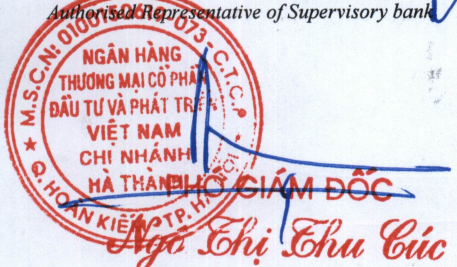 Authorised Representative of Supervisory bank
NGÂN HÀNG
THƯƠNG MẠI CỔ PHẦN
ĐẦU TƯ VÀ PHÁT TRIỂN
VIỆT NAM
CHI NHÁNH
HÀ THÀNH
Q. HOÀN KIẾM TP. HÀ NỘI
PHÓ GIÁM ĐỐC
Ngô Thị Thu Cúc